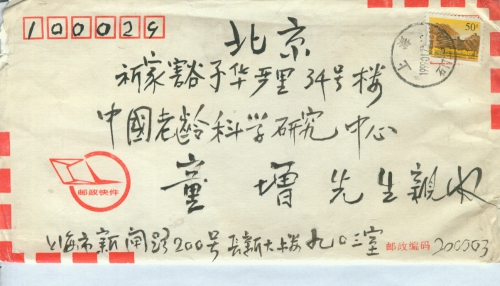 100029
50分
上海
北京
祁家豁子华严里34号楼
中國老龄科学研究中心
童增先生親收
邮政快件
上海市新闸路200号長新大楼九〇三室
邮政编码 200003